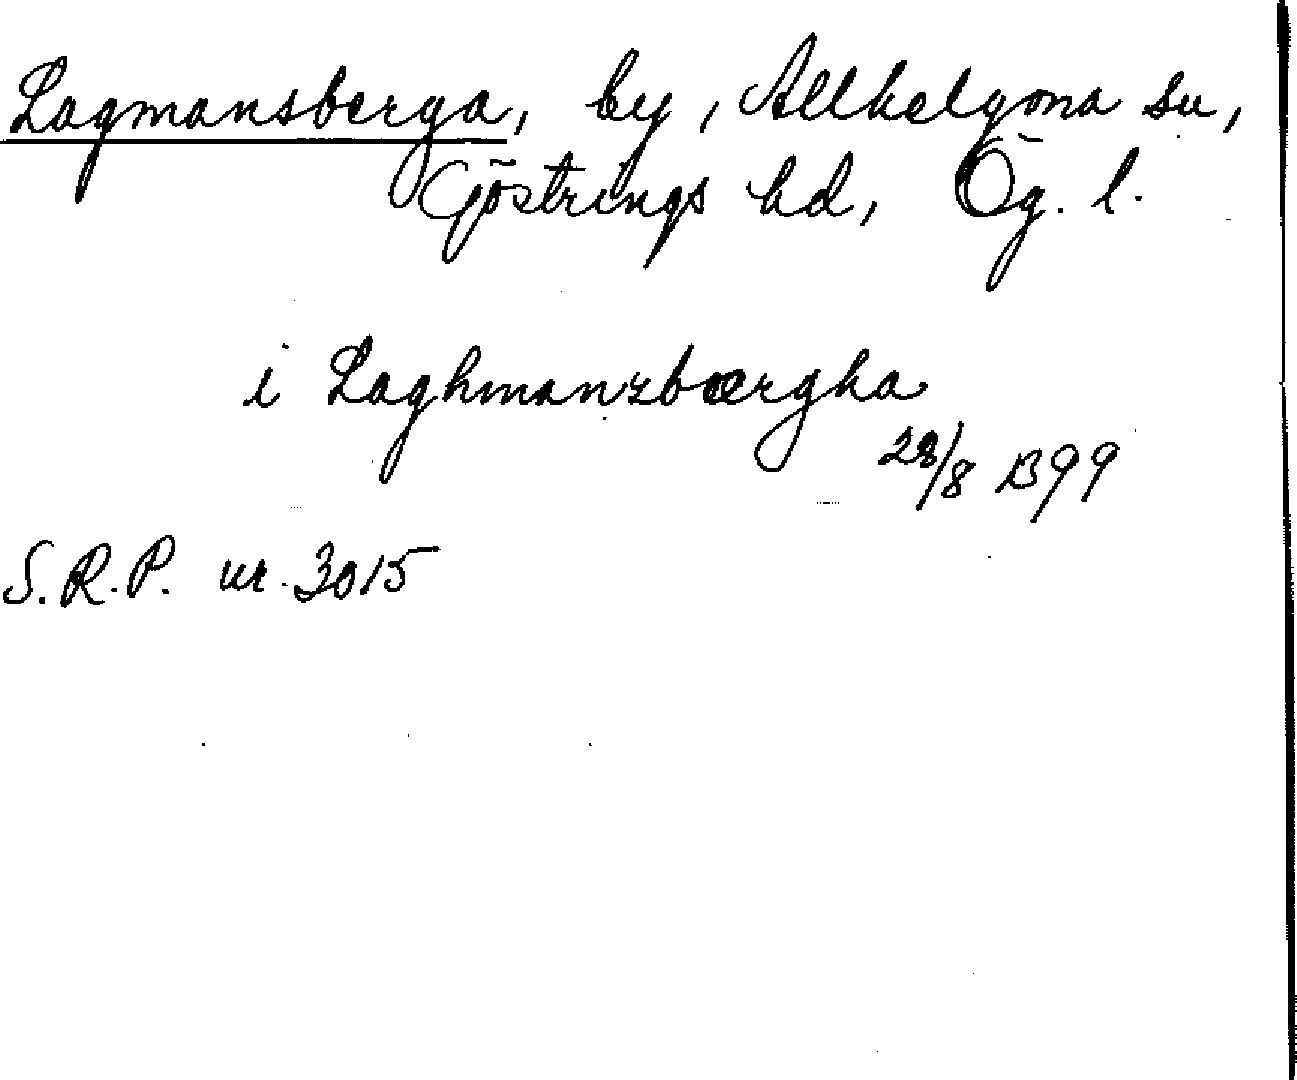 Lagmansberga, by, Allhelgona sn,
Göstrings hd, Ög. l.
i Laghmanzbærgha
28/8 1399
S.R.P. nr. 3015